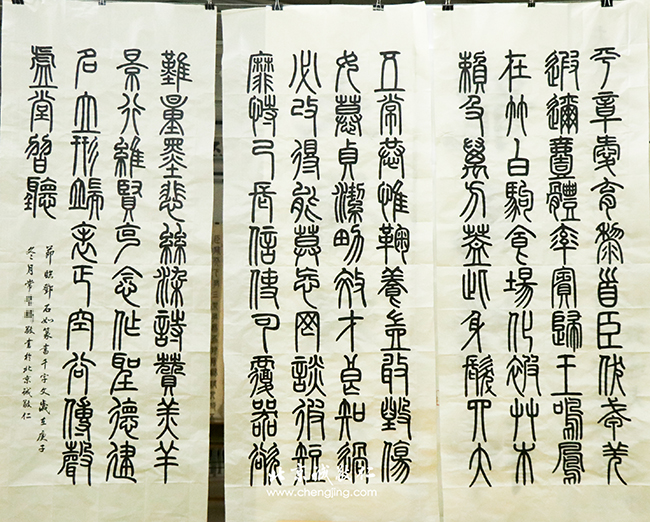 平章愛育黎首臣伏戎羌
遐邇壹體率賓歸王鳴鳳
在竹白駒食場化被艸木
賴及萬方蓋此身髮四大
五常恭惟鞠養豈敢毀傷
女慕貞潔男效才良知過
必改得能莫忘罔談彼短
靡恃己長信使可覆器欲
難量墨悲絲染詩贊羔羊
景行維賢克念作聖德建
名立形端表正空谷傳聲
虛堂習聽
節臨鄧石如篆書千字文歲在庚子
冬月常麟敬書於北京誠敬仁
北京誠敬仁
www.chengjing.com